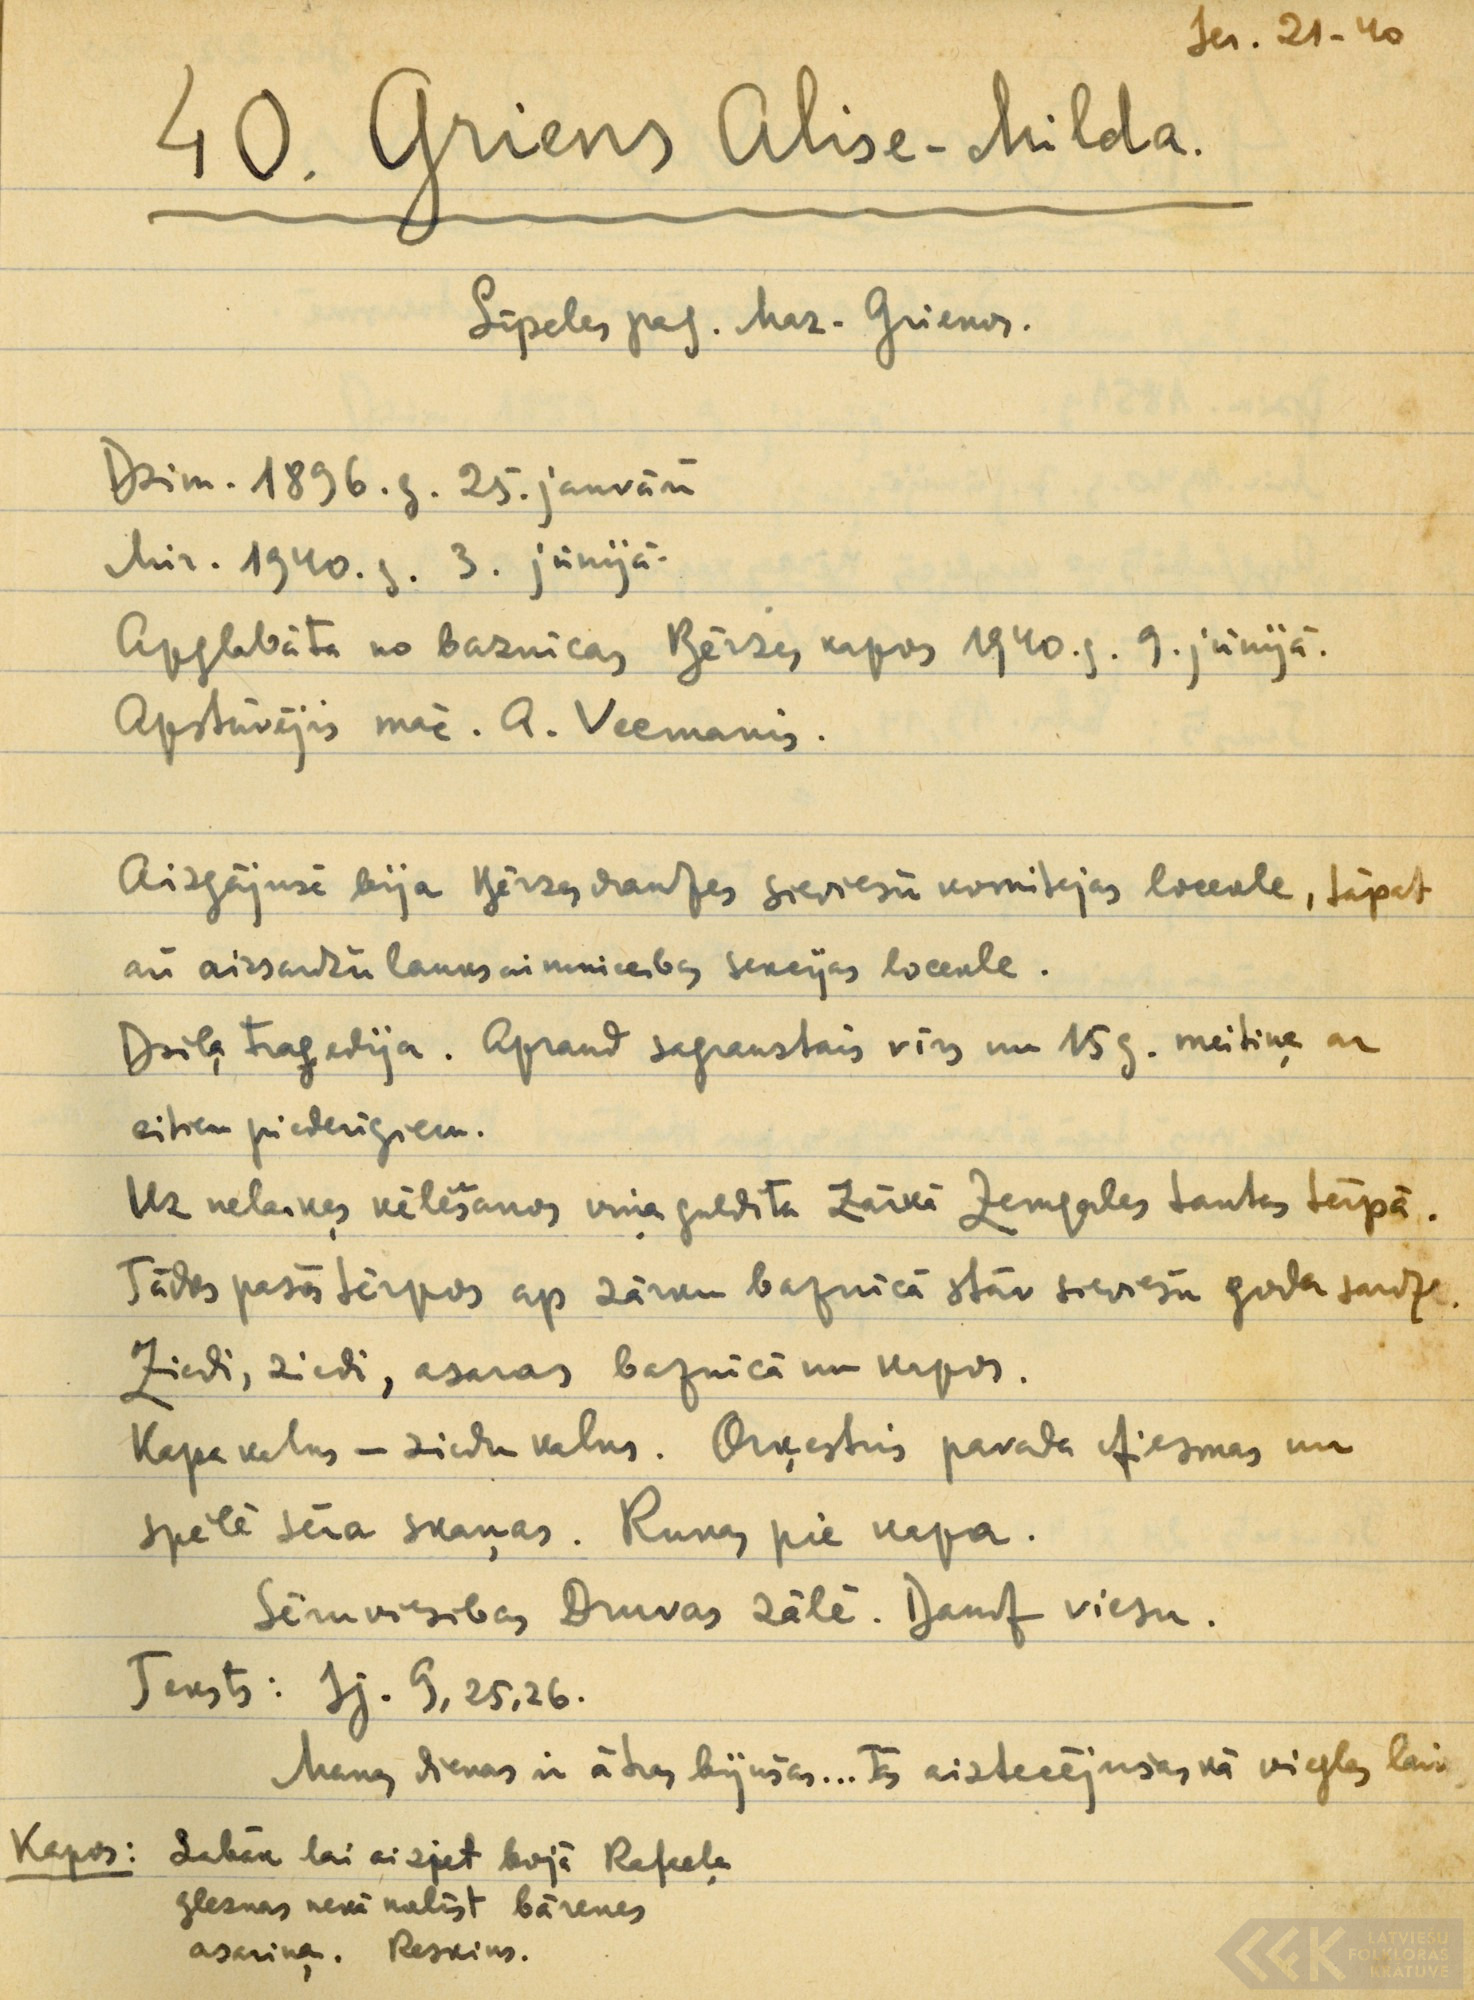 Ser. 21-40
40. Griens Alise-Milda.
Sīpeles pag. Maz-Grienos.
Dzim. 1896. g. 25. janvārī
Mir. 1940. g. 3. jūnijā.
Apglabāta no baznīcas Bērzes kapos 1940. g. 9. jūnijā.
Apstāvējis māc. A. Veemanis.
Aizgājusē bija Bērzes draudzes sieviešu komitejas locekle, tāpat
arī aizsardžu lauksaimniecības sekcijas locekle.
Dziļa traģēdija. Apraud sagrauztais vīrs un 15 g. meitiņa ar
citiem piederīgiem.
Uz nelaiķes vēlēšanos viņa guldīta zārkā Zemgales tautas tērpā.
Tādos pašos tērpos ap zārku baznīcā stāv sieviešu goda sardze.
Ziedi, ziedi, asaras baznīcā un kapos.
Kapa kalns – ziedu kalns. Orķestris pavada dziesmas un
spēlē sēra skaņas. Runas pie kapa.
Sēru viesības Druvas zālē. Daudz viesu.
Teksts: Īj. 9, 25, 26.
Manas dienas ir ātras bijušas... Tās aiztecējušas kā vieglas laiv
Kapos: Labāk lai aiziet bojā Rafaeļa
gleznas nekā nolīst bārenes
asariņa. Reskins.
LATVIEŠU
FOLKLORAS
KRĀTUVE